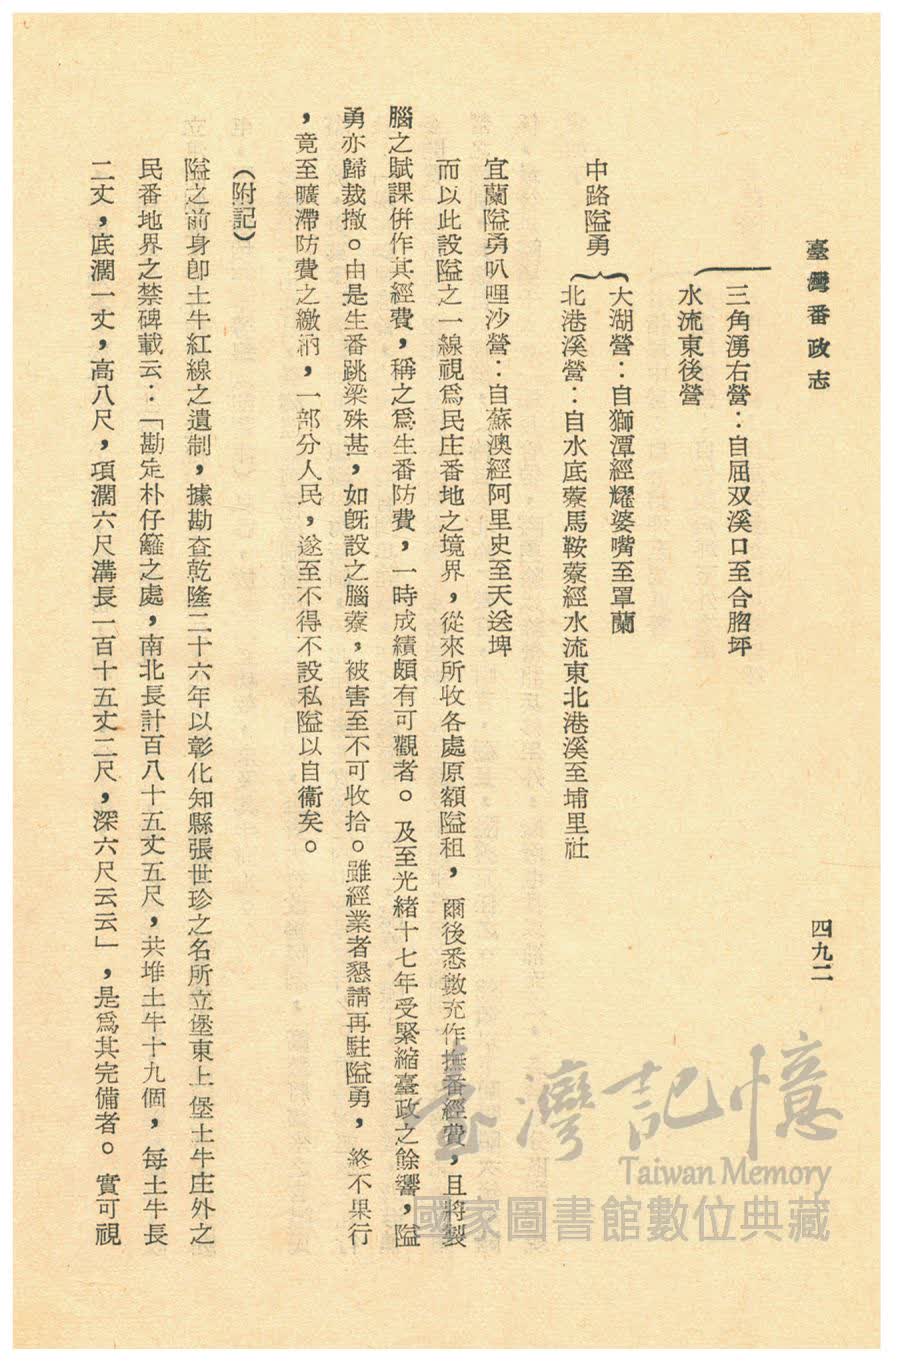 臺灣番政志
四九二
三角湧右營：自屈双溪口至合脗坪
水流東後營
中路隘勇
大湖營：自獅潭經耀婆嘴至罩蘭
北港溪營：自水底藔馬鞍藔經水流東北港溪至埔里社
宜蘭隘勇叭哩沙營：自蘇澳經阿里史至天送埤
而以此設隘之一線視爲民庄番地之境界，從來所收各處原額隘租，爾後悉數充作撫番經費，且將製
腦之賦課併作其經費，稱之爲生番防費，一時成績頗有可觀者。及至光緒十七年受緊縮臺政之餘響，隘
勇亦歸裁撤。由是生番跳梁殊甚，如旣設之腦藔，被害至不可收拾。雖經業者懇請再駐隘勇，終不果行
，竟至曠滯防費之繳納，一部分人民，遂至不得不設私隘以自衞矣。
（附記）
隘之前身卽土牛紅線之遺制，據勘查乾隆二十六年以彰化知縣張世珍之名所立堡東上堡土牛庄外之
民番地界之禁碑載云：「勘定朴仔籬之處，南北長計百八十五丈五尺，共堆土牛十九個，每土牛長
二丈，底濶一丈，高八尺，項濶六尺溝長一百十五丈二尺，深六尺云云」，是爲其完備者。實可視
臺灣記憶
Taiwan Memory
國家圖書館數位典藏